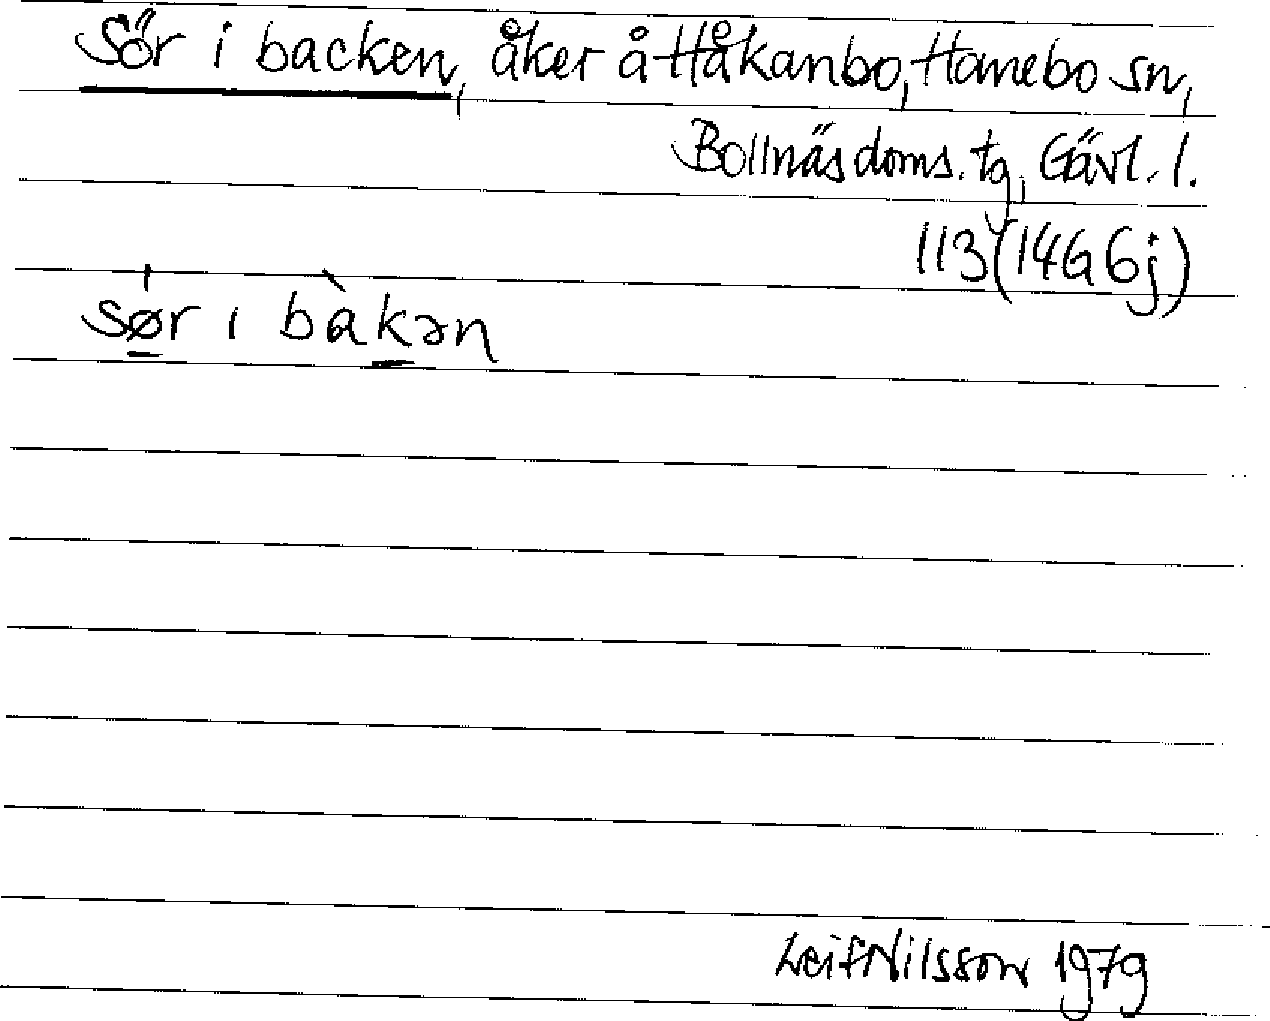 Sör i backen, åker å Håkanbo, Hanebo sn,
Bollnäs doms. tg, Gävl. l.
113 (14G 6j)
sør i bàkən
Leif Nilsson 1979